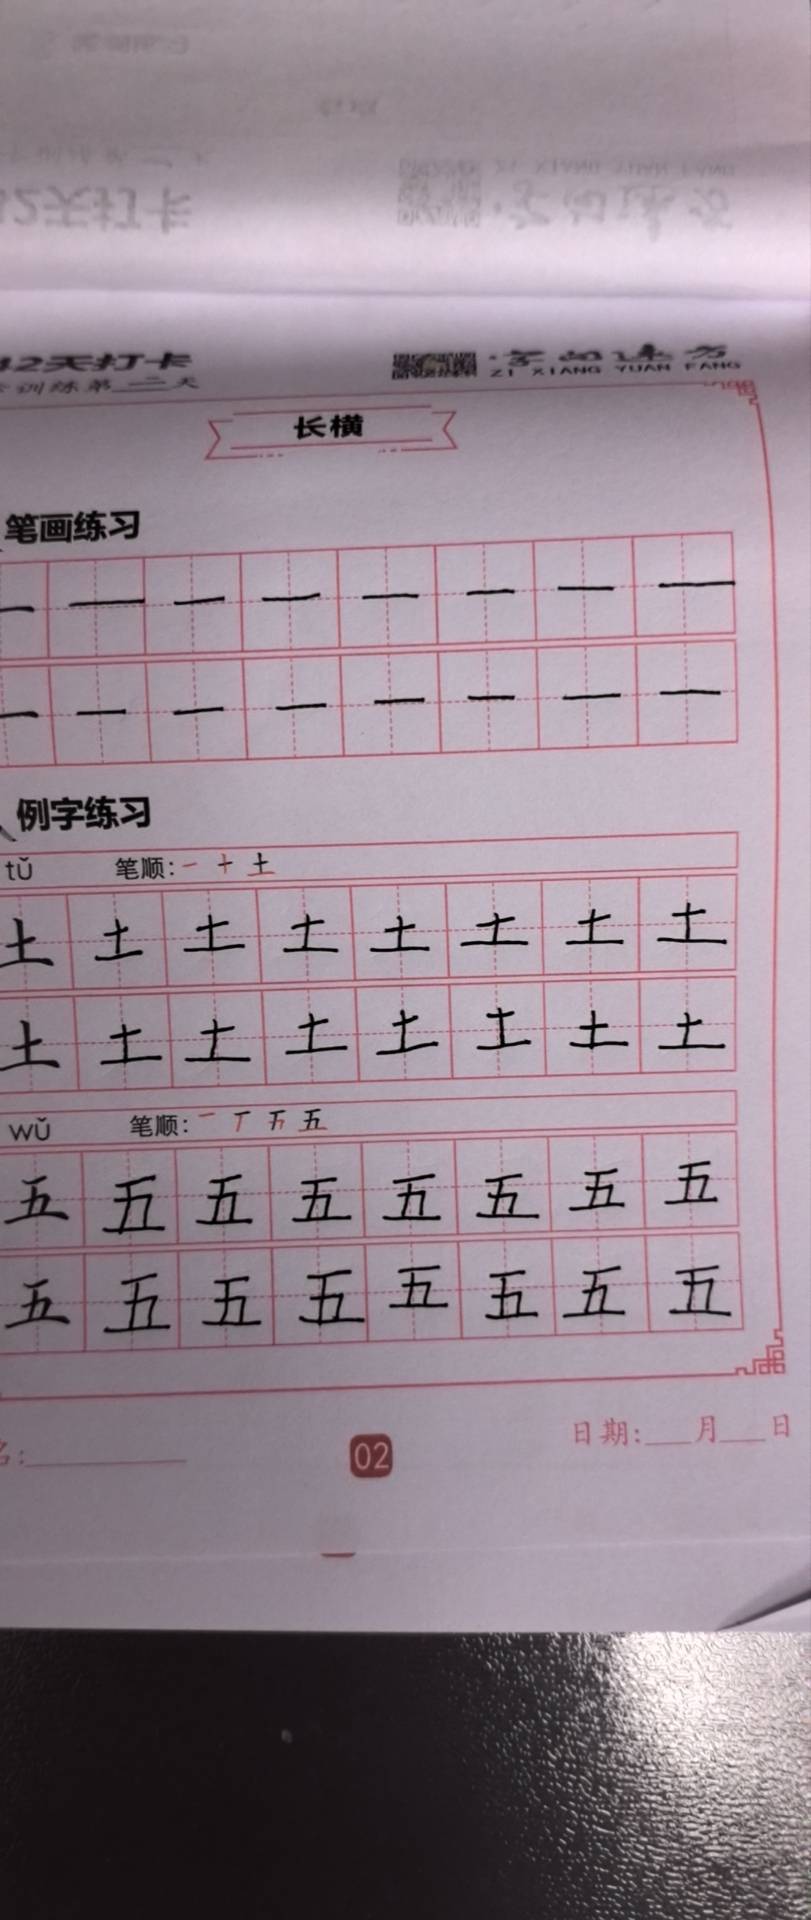 42天打卡 字向远方
训练第二天 ZI XIANG YUAN FANG
长横
笔画练习
一 一 一 一 一 一 一 一
一 一 一 一 一 一 一 一
例字练习
tǔ 笔顺: 一 十 土
土 土 土 土 土 土 土 土
土 土 土 土 土 土 土 土
wǔ 笔顺: 一 丆 五
五 五 五 五 五 五 五 五
五 五 五 五 五 五 五 五
名: 02 日期: 月 日